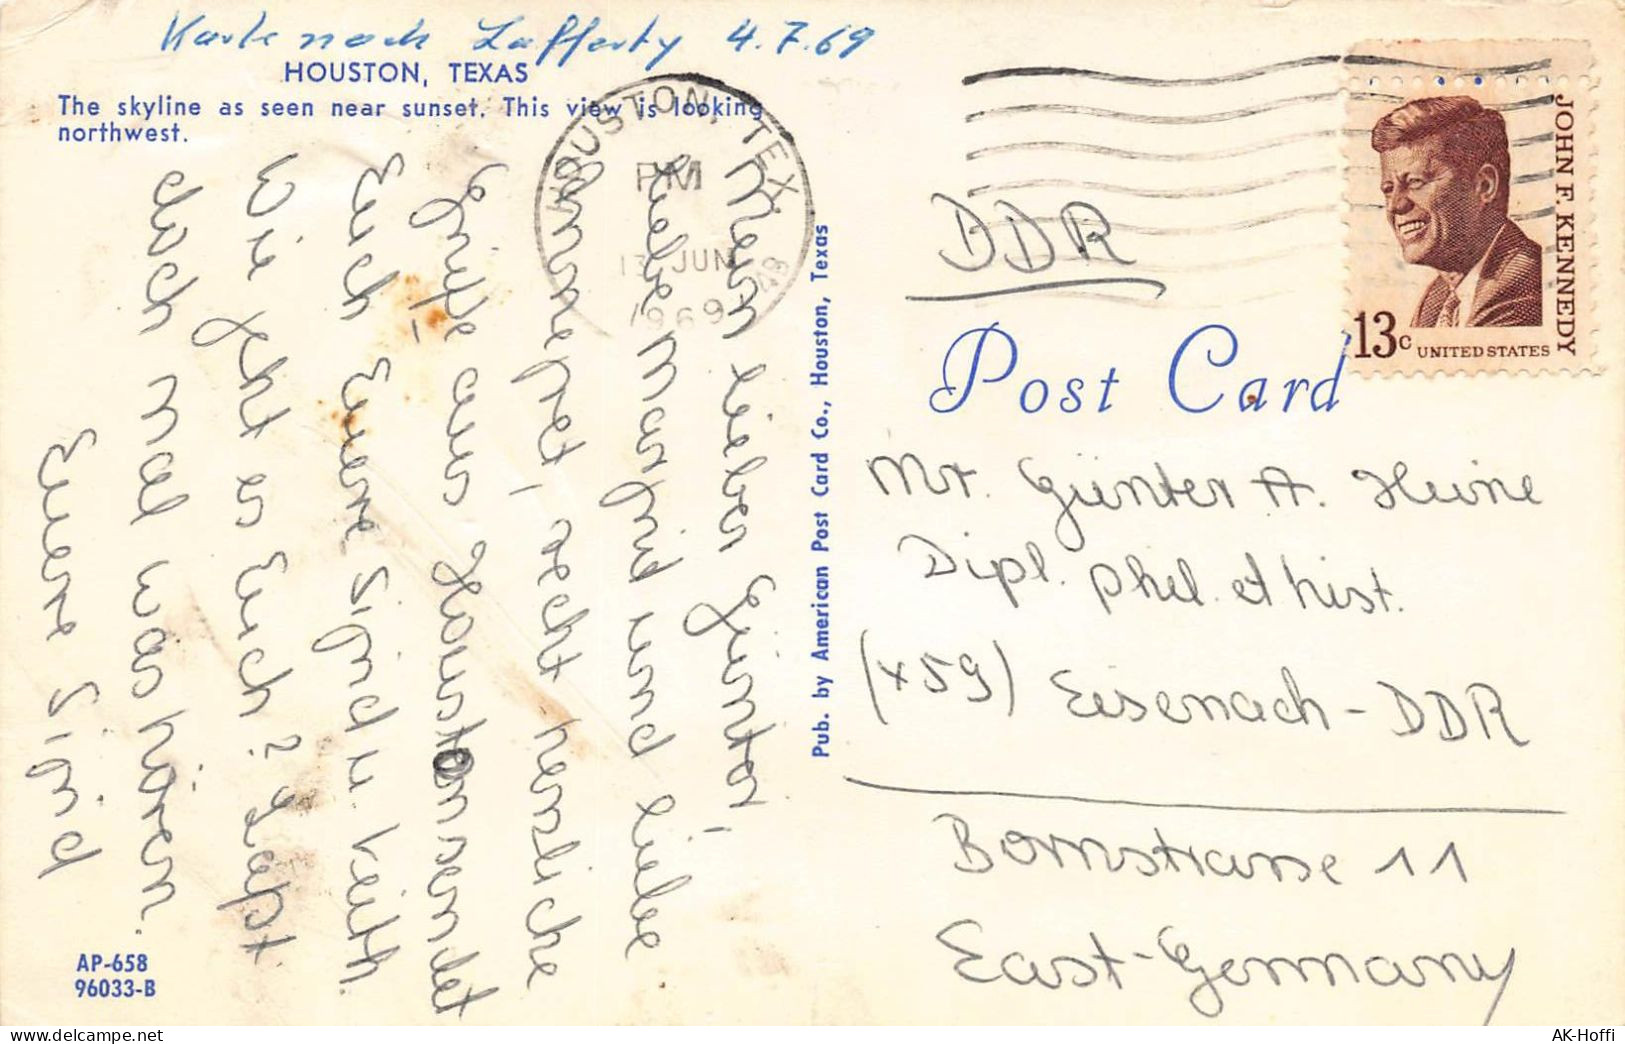 Karte nach Lafferty 4.7.69
HOUSTON, TEXAS
The skyline as seen near sunset. This view is looking
northwest.
HOUSTON, TEX.
PM
13 JUN
1969
Mein lieber Günter,
liebe Margrid und liebe
Annegret, recht herzliche
Grüße aus Houston sendet
Euch Euere Sigrid u. Keith.
Wie geht es Euch? Laßt
doch mal was hören.
Euere Sigrid
AP-658
96033-B
Pub. by American Post Card Co., Houston, Texas
JOHN F. KENNEDY
13c UNITED STATES
DDR
Post Card
Mr. Günter A. Heine
Dipl. phil. et hist.
(x59) Eisenach - DDR
Bornstrasse 11
East-Germany
AK-Hoffi